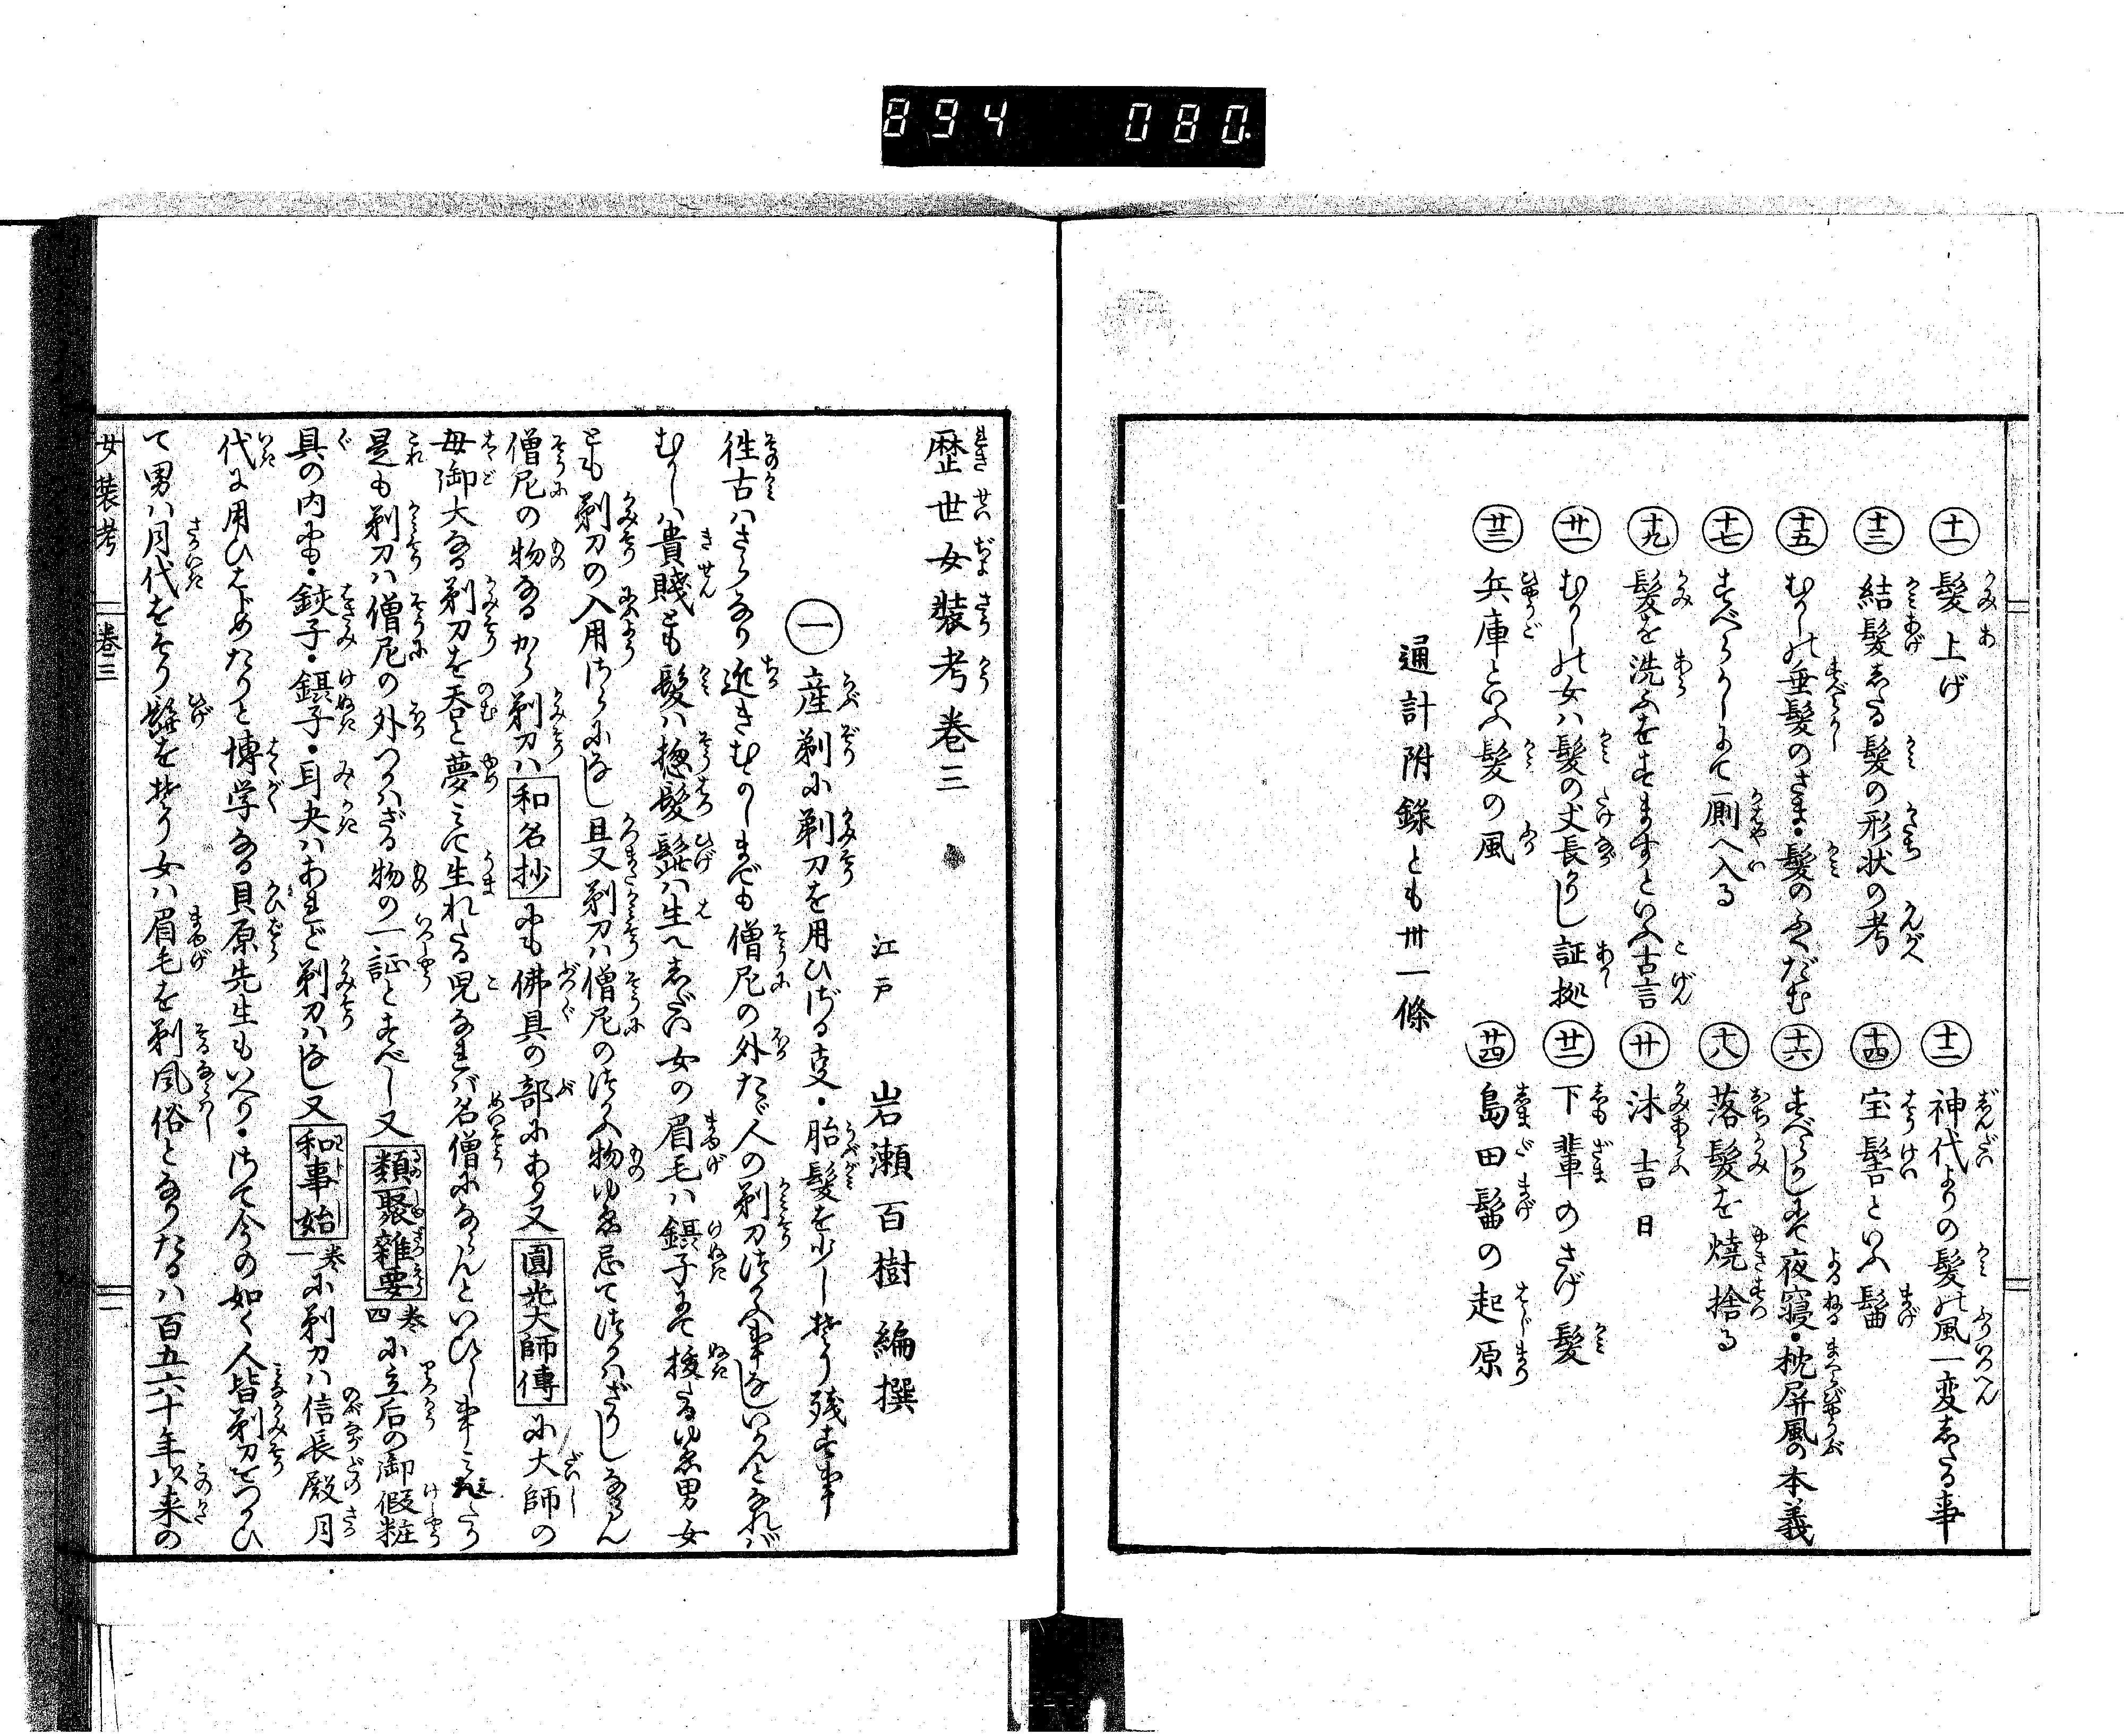 894 080
十一 髪上げ
十二 神代よりの髪の風一変したる事
十三 結髪したる髪の形状の考
十四 宝髻といふ髷
十五 むかしの垂髪のさま・髪のふくだむ
十六 すべらかしにて夜寝・枕屏風の本義
十七 すべらかしにて厠へ入る
十八 落髪を焼捨る
十九 髪を洗ふをすますといふ古言
廿 沐吉日
廿一 むかしの女ハ髪の丈長かりし証拠
廿二 下輩のさげ髪
廿三 兵庫といふ髪の風
廿四 島田髷の起原
通計附録とも卅一條
歴世女装考巻三
江戸 岩瀬百樹編撰
一 産剃に剃刀を用ひざる支・胎髪を少し剃り残す事
往古ハさらなり近きむかしまでも僧尼の外たゞ人の剃刀つかふ事なしいかんとなれバ
むかしハ貴賤とも髪ハ惣髪髭ハ生へしだい女の眉毛ハ鑷子にて抜たるゆゑ男女
とも剃刀の入用さらになし且又剃刀ハ僧尼のつかふ物ゆゑ忌てつかハざりしならん
僧尼の物なるから剃刀ハ和名抄にも佛具の部にあり又圓光大師傳に大師の
母御大なる剃刀を呑と夢みて生れたる児なれバ名僧にならんといひし事みえたり
是も剃刀ハ僧尼の外つかハざる物の一証とすべし又類聚雜要巻四に立后の御假粧
具の内にも・鋏子・鑷子・耳决ハあれど剃刀ハなし又和事始巻一に剃刀ハ信長殿月
代に用ひはじめたりと博学なる貝原先生もいへり・さて今の如く人皆剃刀をつかひ
て男ハ月代をそり髭を剃り女ハ眉毛を剃風俗となりたるハ百五六十年以来の
女装考 巻三 一